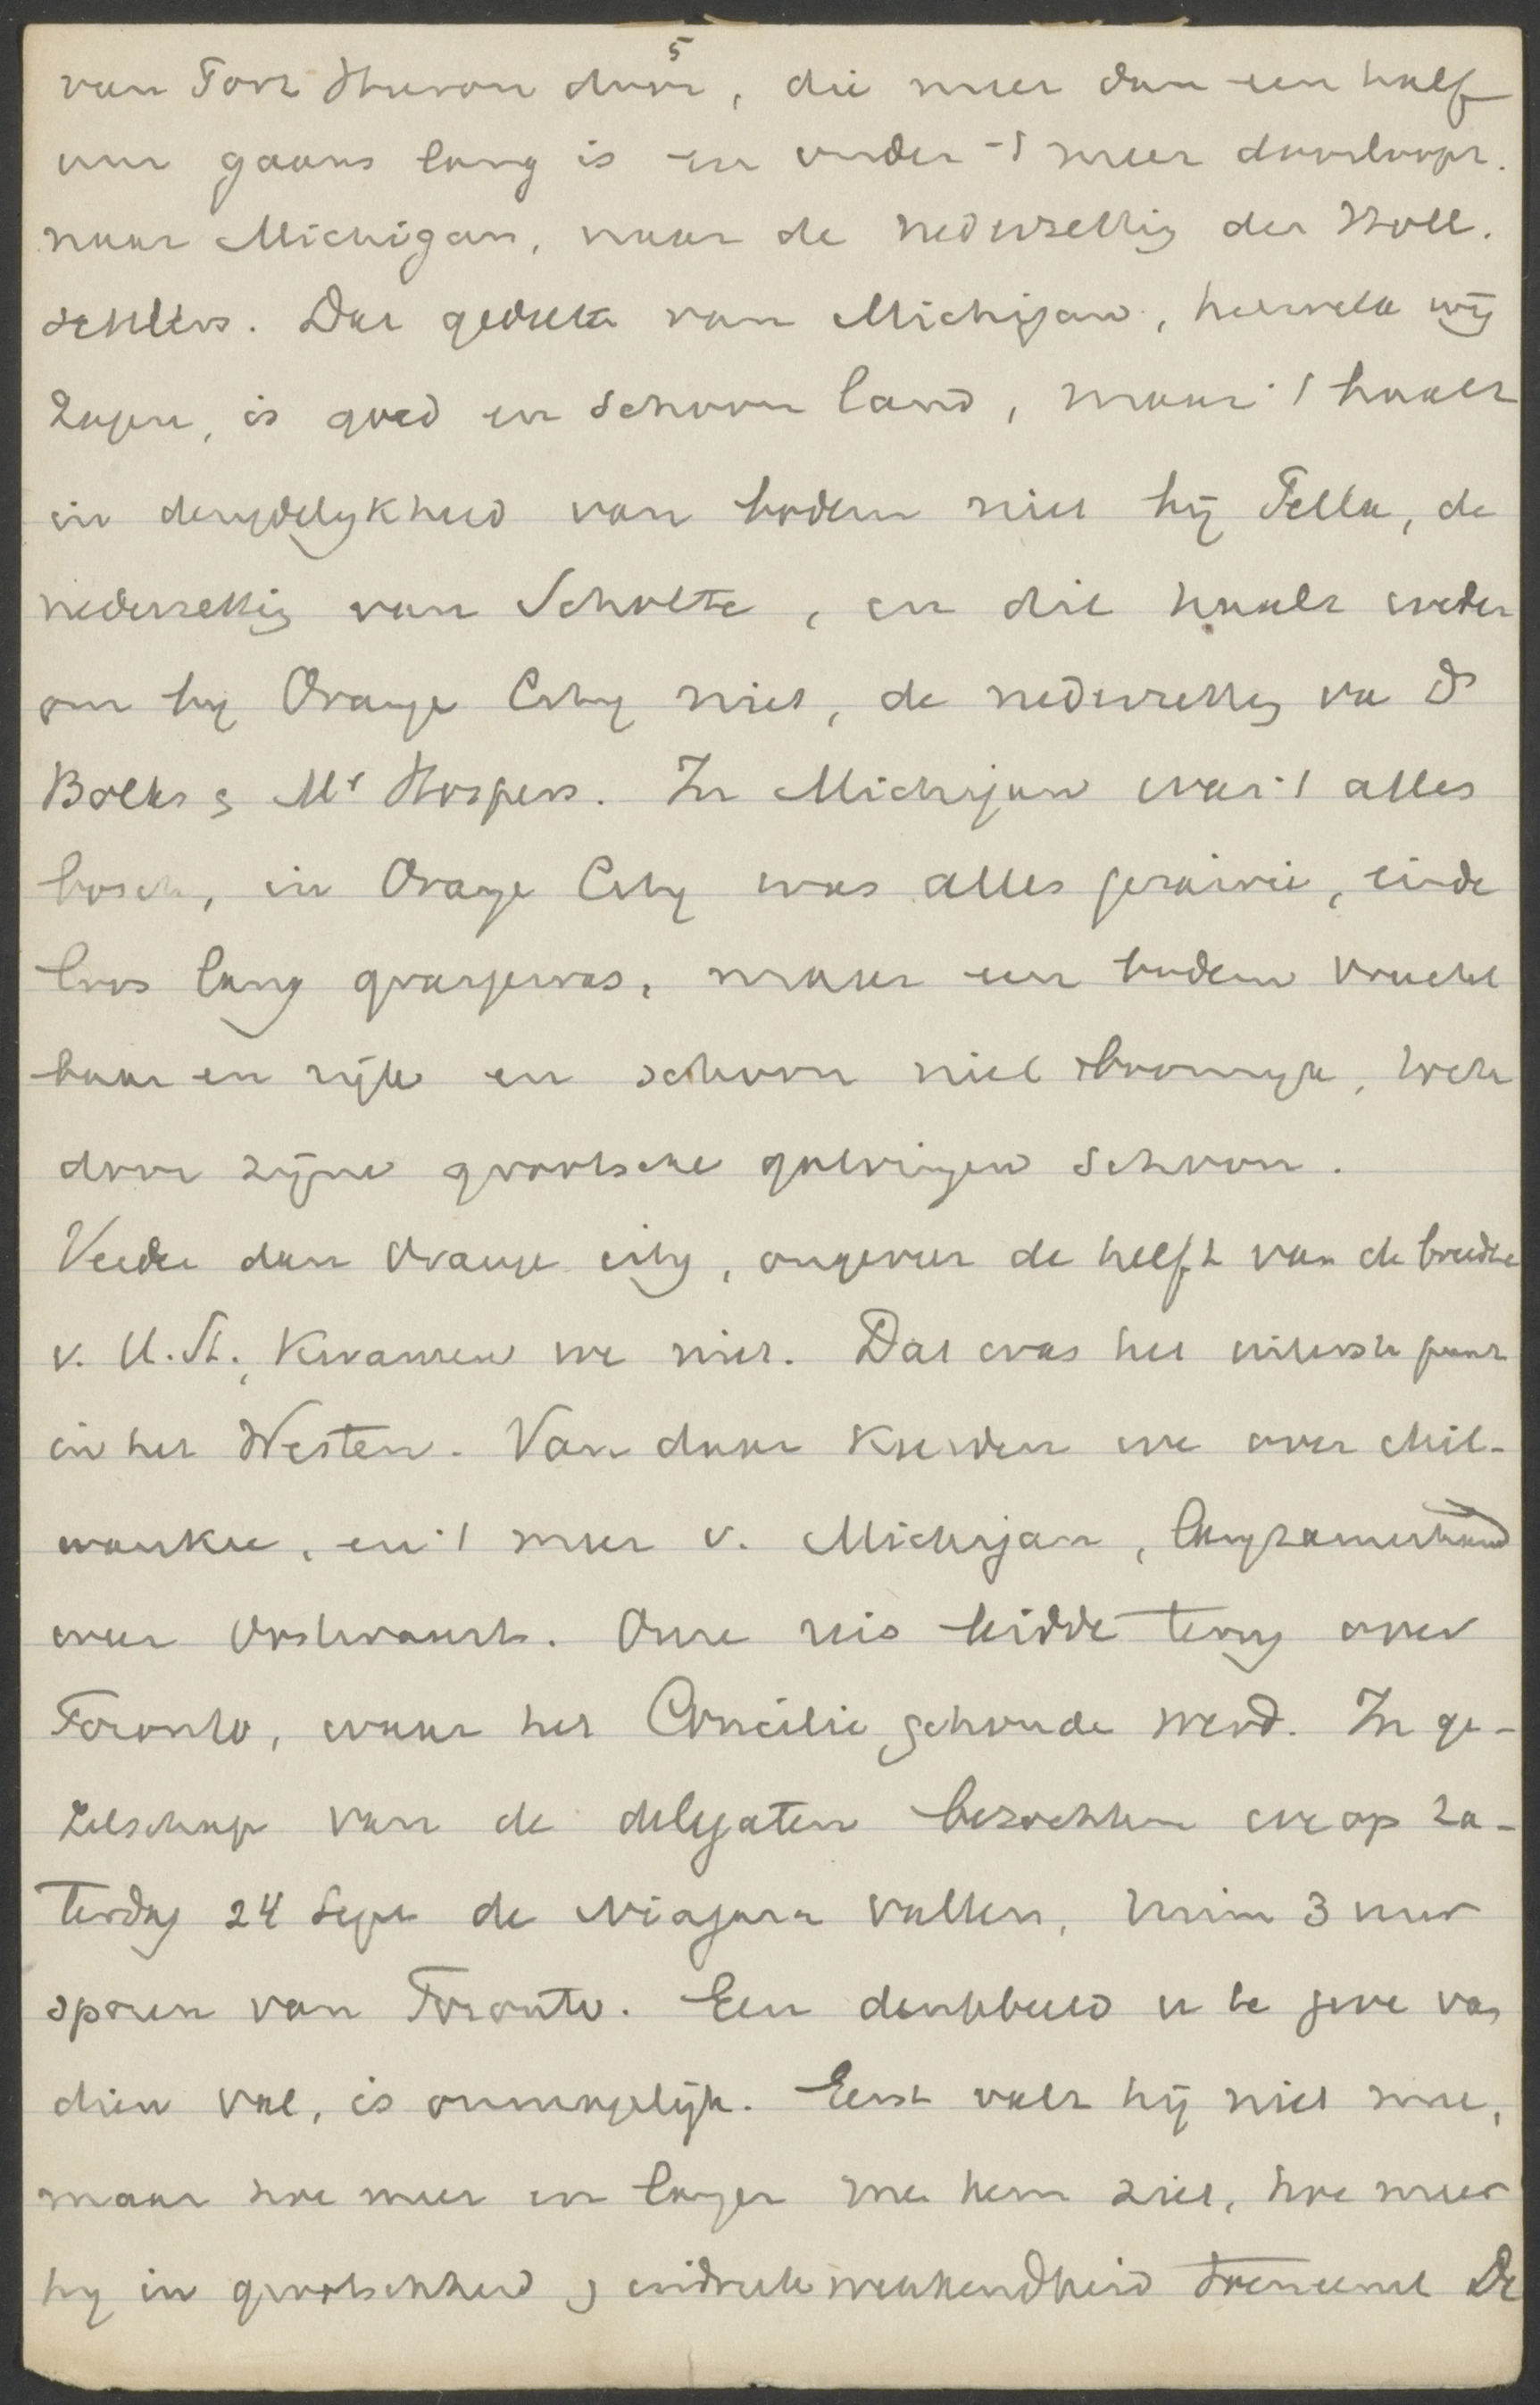 5
van Fort Huron door, die meer dan een half
uur gaans lang is en onder 't meer doorloopt.
naar Michigan, naar de nederzettig der Holl.
settlers. Dat gedeelte van Michigan, hetwelk wij
zagen, is goed en schoon land, maar 't haalt
in deugdelykheid van bodem niet bij Pella, de
nederzettig van Scholte, en dit haalt weder
om by Orange City niet, de nederzettig va Ds
Bolks & Mr Hospers. In Michigan was 't alles
bosch, in Orange City was alles prairie, einde
loos lang grasgewas, maar een bodem vrucht
baar en rijk en schoon niet boomryk, toch
door zijne grootsche golvingen schoon.
Verder dan Orange city, ongeveer de helft van de breedte
v. U. St., kwamen we niet. Dat was het uiterste punt
in het Westen. Van daar keerden we over Mil-
waukee, en 't meer v. Michigan, langzamerhand
weer Oostwaarts. Onze reis leidde terug over
Toronto, waar het Concilie gehoude werd. In ge-
zelschap van de delegaten bezochten we op Za-
terdag 24 Sept de Niagara vallen, ruim 3 uur
sporen van Toronto. Een denkbeeld u te geve van
dien val, is onmogelijk. Eerst valt hij niet mee,
maar hoe meer en langer me hem ziet, hoe meer
hy in grootschheid & indrukwekkendheid toeneemt De